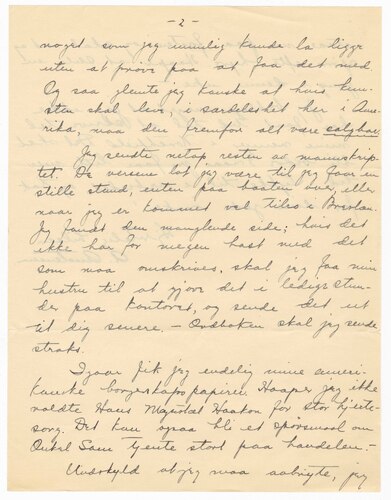 - 2 -
noget som jeg umulig kunde la ligge
uten at prøve paa at faa det med
Og saa glemte jeg kanske at hvis kun-
sten skal leve, i særdeleshet her i Ame-
rika, maa den fremfor alt være salgbar.
Jeg sendte netop resten av manuskrip-
tet. De versene lot jeg være til jeg faar en
stille stund, enten paa baaten over, eller
naar jeg er kommet vel tilro i
Jeg fandt den manglende side; hvis det
ikke har for megen hast med det
som maa omskrives, skal jeg faa min
hustru til at gjøre det i ledige stun-
der paa kontoret, og sende det ut
til dig senere. - Ordboken skal jeg sende
straks.
Igaar fik jeg endelig mine ameri-
kanske borgerskapspapirer. Haaper jeg ikke
voldte Hans Majestæt Haakon for stor hjerte-
sorg. Det kan ogsaa bli et spørsmaal om
Onkel Sam tjente stort paa handelen. -
Undskyld at jeg maa avbryte, jeg